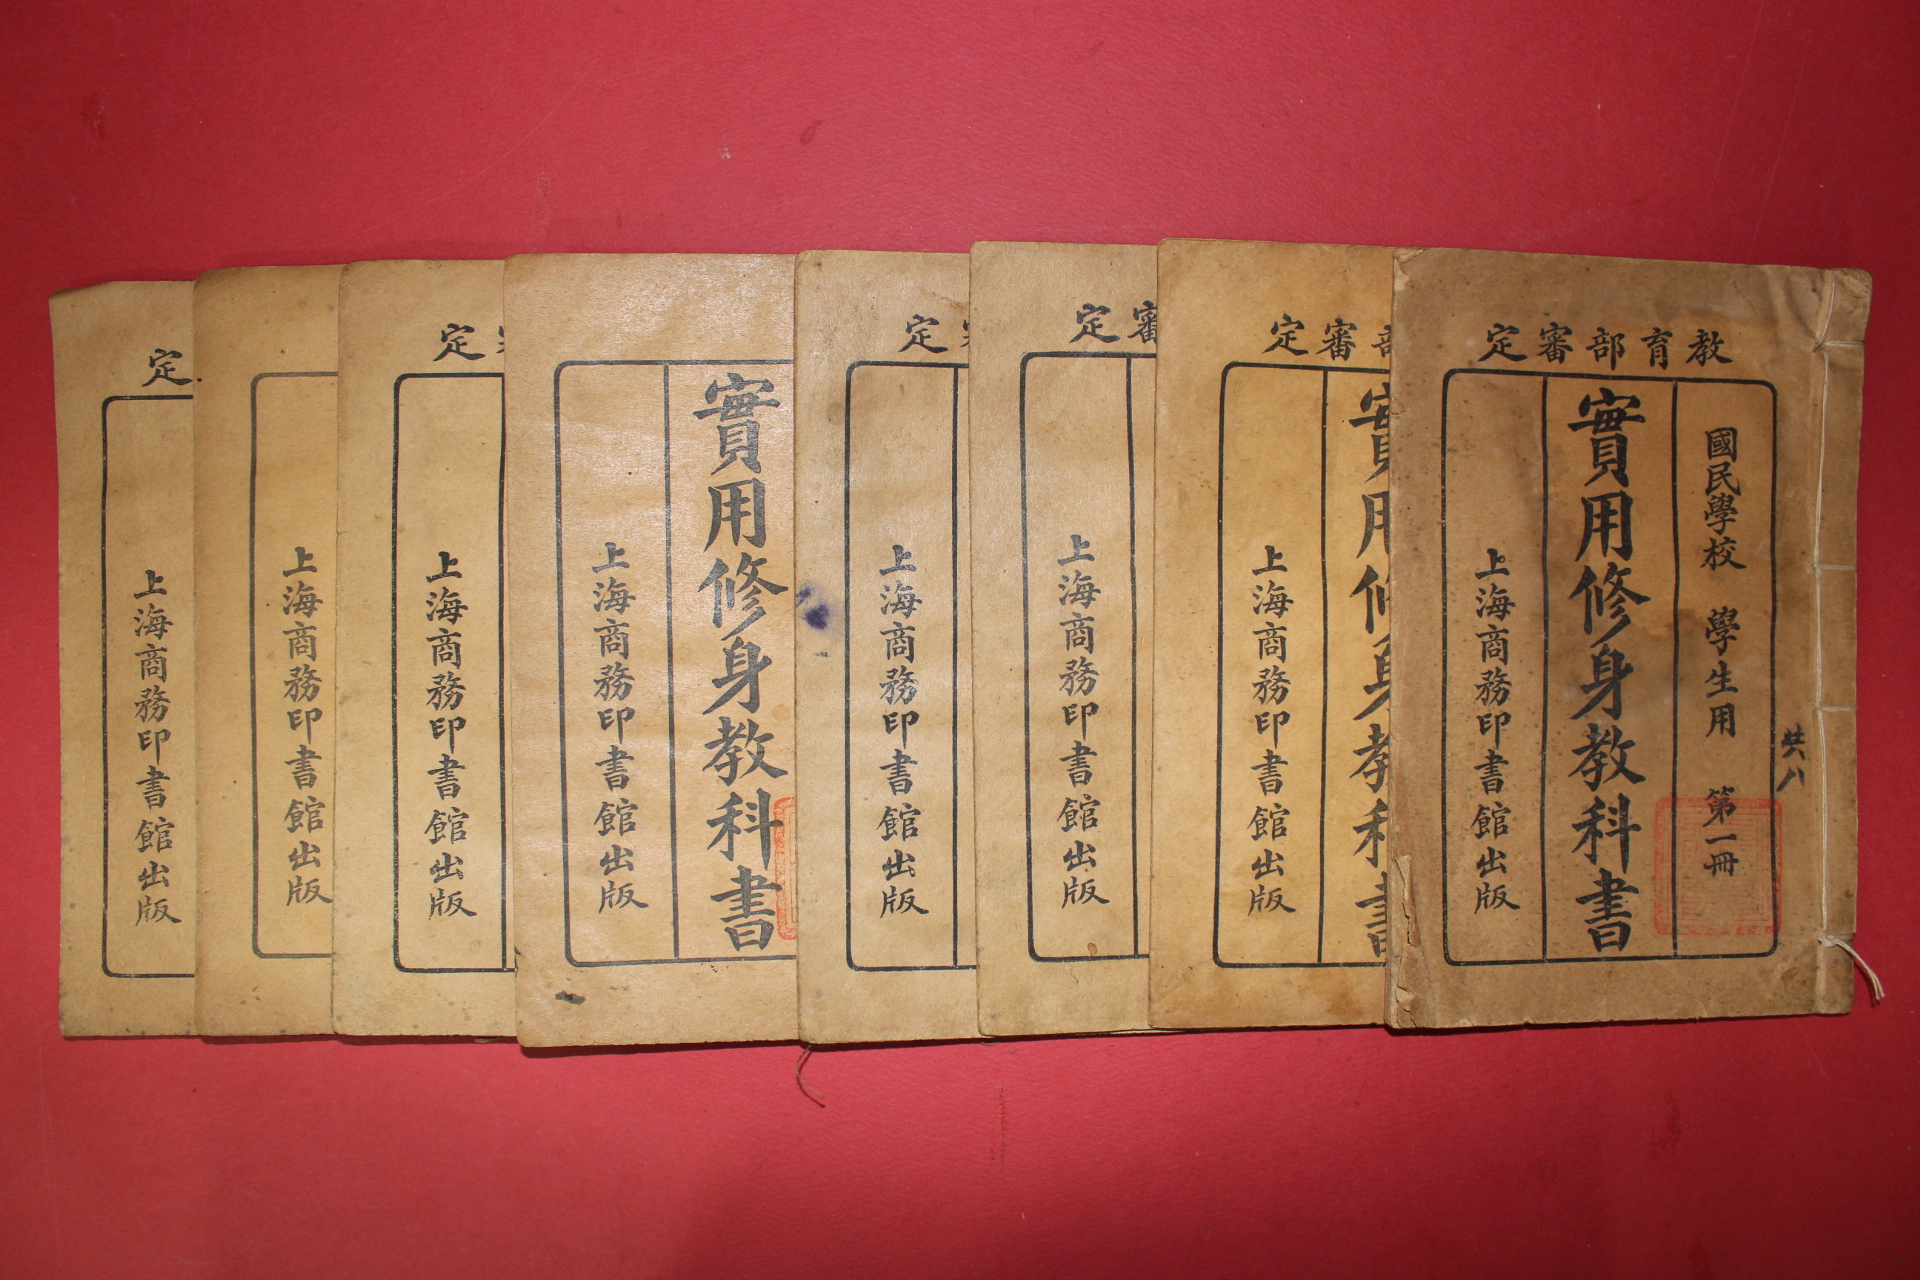 教育部審定
國民學校 學生用 第一冊
實用修身教科書
上海商務印書館出版
共八
部審定
實用修身教科書
上海商務印書館出版
審定
上海商務印書館出版
定
上海商務印書館出版
實用修身教科書
上海商務印書館出版
定
上海商務印書館出版
上海商務印書館出版
定
上海商務印書館出版